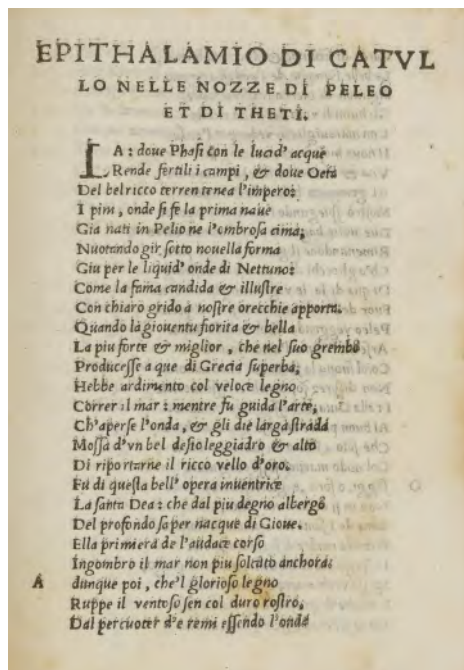 EPITHALAMIO DI CATVL
LO NELLE NOZZE DI PELEO
ET DI THETI.
LA: doue Phasi con le lucid' acque
Rende fertili i campi, & doue Oeta
Del bel ricco terren tenea l'impero:
I pini, onde si fe la prima naue
Gia nati in Pelio ne l'ombrosa cima;
Nuotando gir sotto nouella forma
Giu per le liquid' onde di Nettuno:
Come la fama candida & illustre
Con chiaro grido à nostre orecchie apporta.
Quando la giouentu fiorita & bella
La piu forte & miglior, che nel suo grembo
Producesse a que di Grecia superba;
Hebbe ardimento col veloce legno
Correr il mar: mentre fu guida l'arte,
Ch'aperse l'onda, & gli die larga strada
Mossa d'vn bel desio leggiadro & alto
Di riportarne il ricco vello d'oro.
Fu di questa bell' opera inuentrice
La santa Dea: che dal piu degno albergo
Del profondo saper nacque di Gioue.
Ella primiera de l'audace corso
Ingombro il mar non piu solcato anchora.
A dunque poi, che'l glorioso legno
Ruppe il ventoso sen col duro rostro;
Dal percuoter d'e remi essendo l'onda